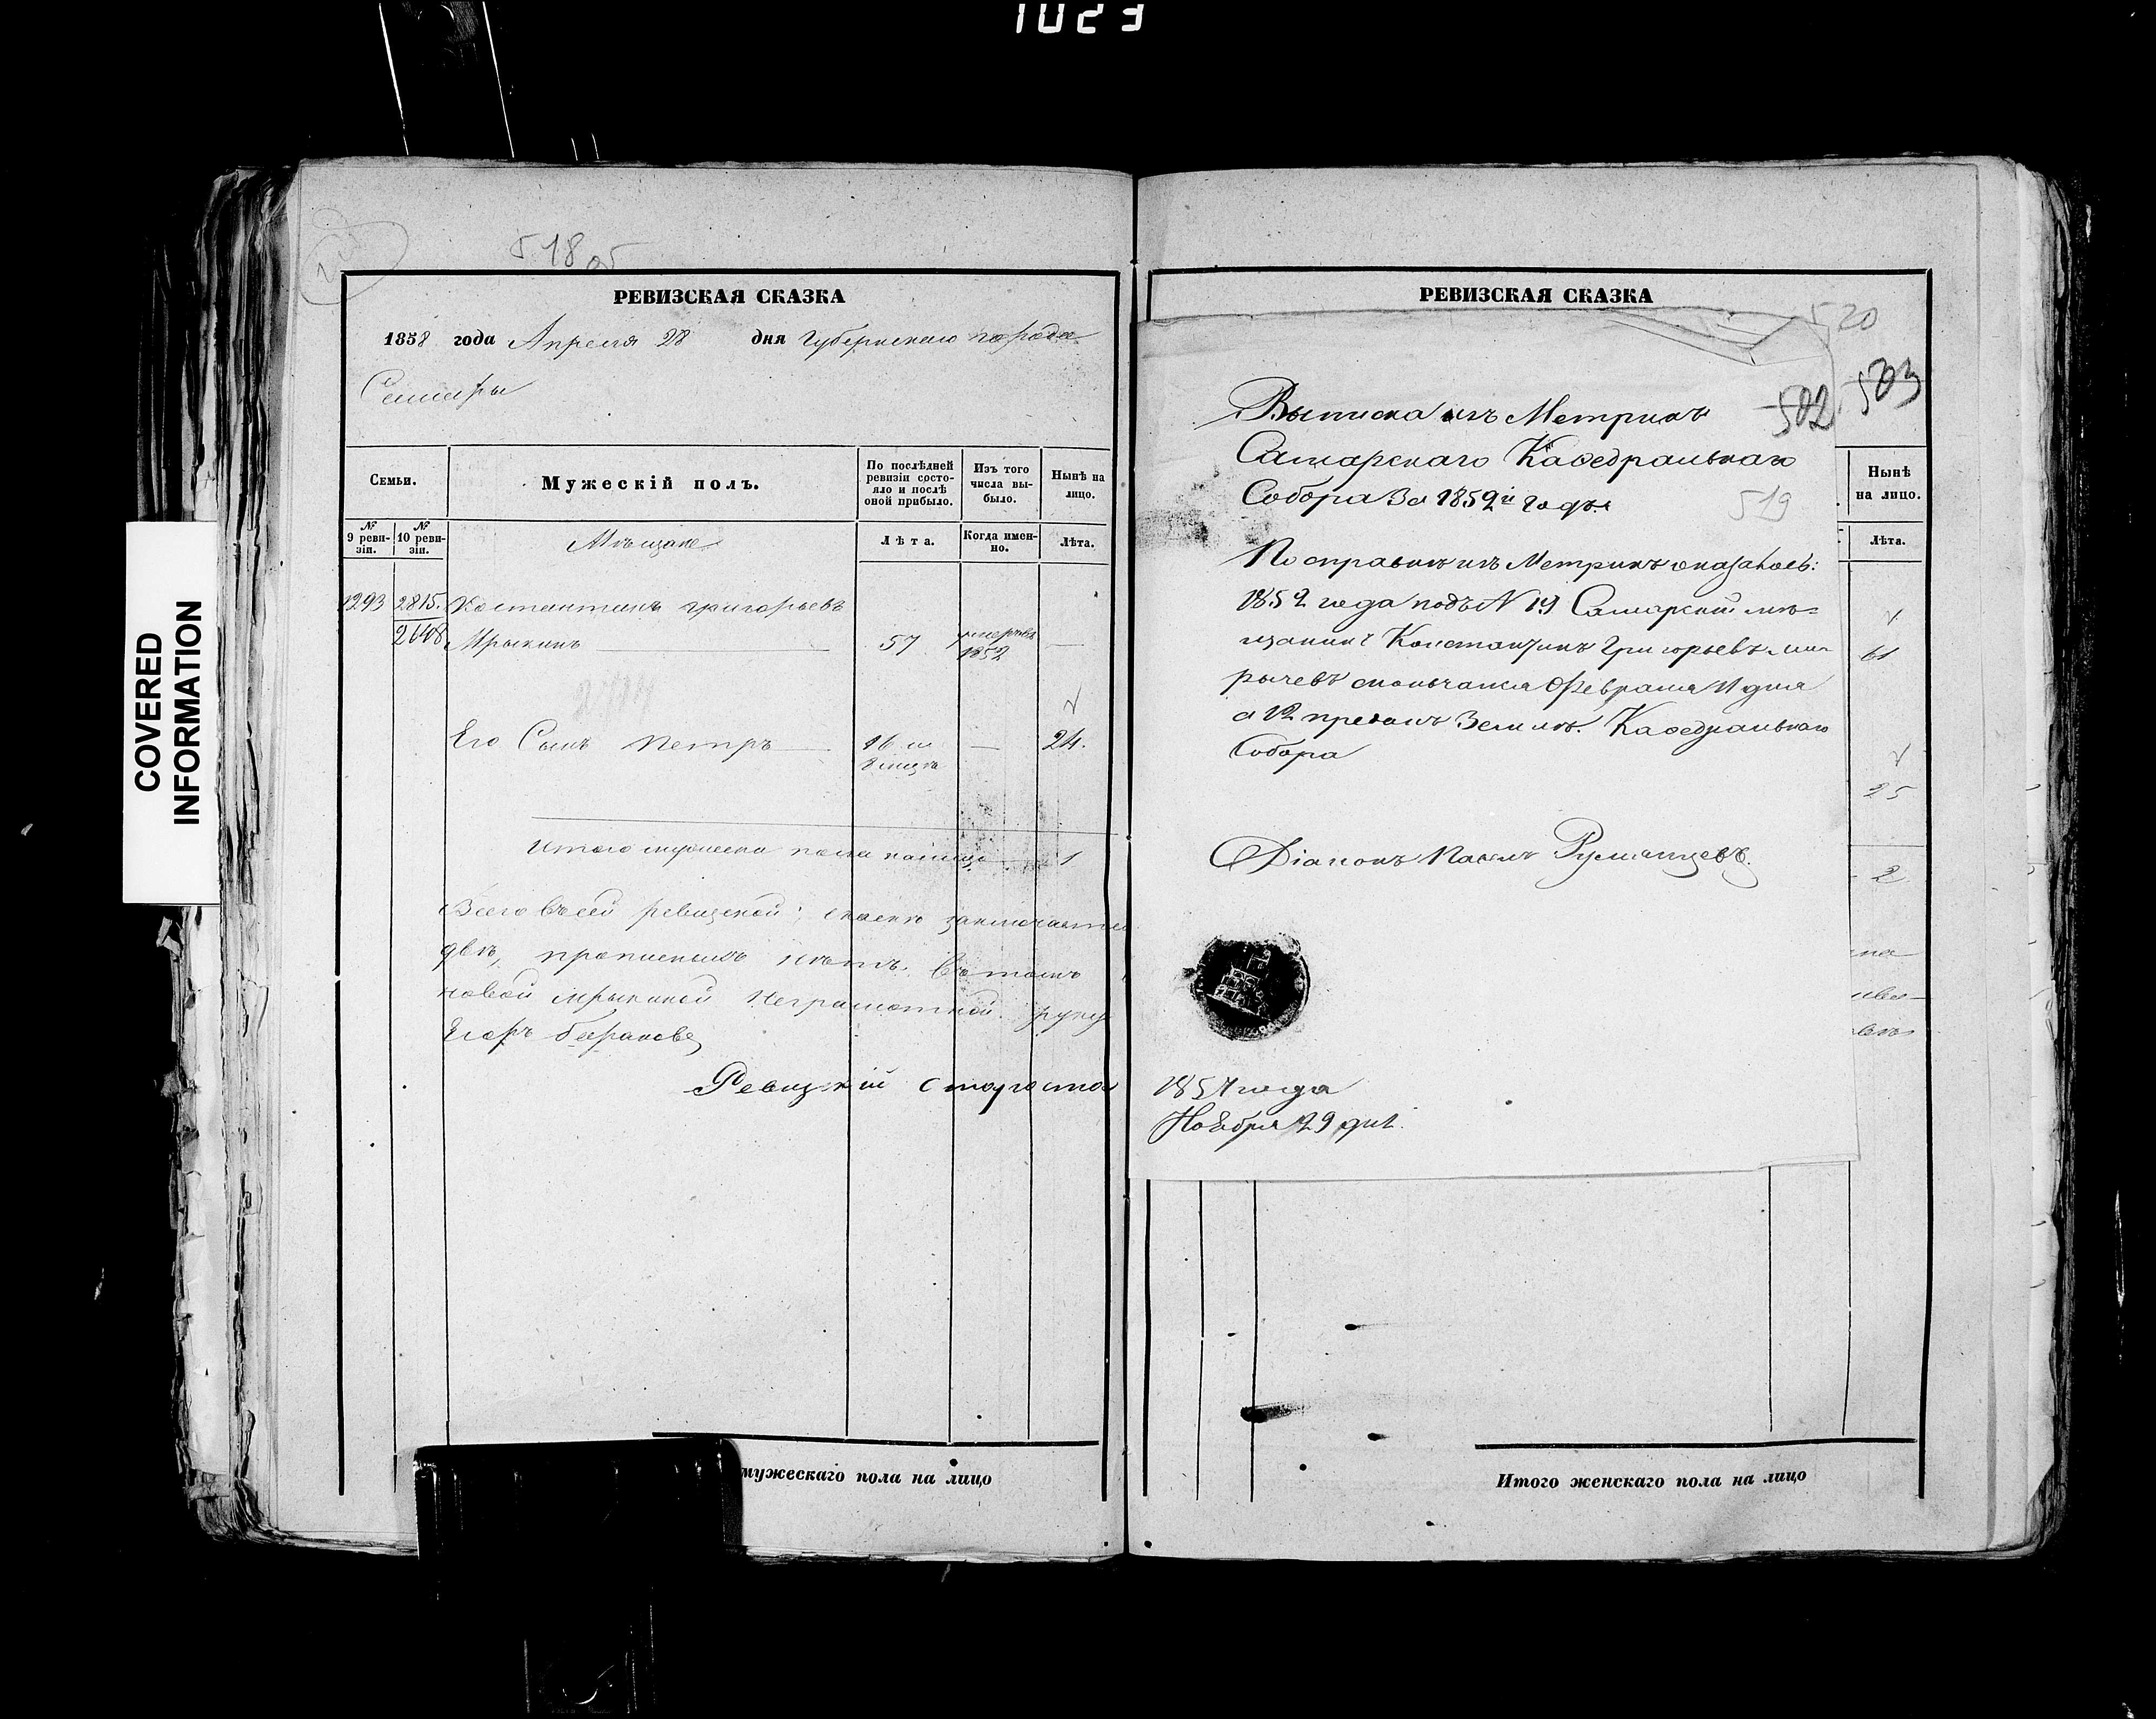 1023
COVERED
INFORMATION
518 об
РЕВИЗСКАЯ СКАЗКА
1858 года Апреля 28 дня Губернскаго города
Самары
Семьи.
Мужескій полъ.
По послѣдней ревизіи состояло и послѣ оной прибыло.
Изъ того числа выбыло.
Нынѣ на лицо.
№ 9 ревизіи.
№ 10 ревизіи.
Мѣщане
Лѣта.
Когда именно.
Лѣта.
1293 2815. Костантинъ григорьевъ
2648 Мрыкинъ 57 умеръ въ 1852 —
Его Сынъ Петръ 16 — 24.
Итого мужеска пола налицо 1
Всего въ сей ревизской; сказкѣ заключается
двѣ, прописныхъ нѣтъ. Въ томъ
новой мрыкиной Неграмотной. руку
Егоръ барановъ
Ревизкій староста
мужескаго пола на лицо
РЕВИЗСКАЯ СКАЗКА
520
502
503
519
Выписка изъ Метрикъ
Самарскаго Каѳедральнаго
Собора За 1852й годъ
По справкѣ изъ Метрикъ оказалось:
1852 года подъ N 19 Самарскій мѣ=
щанинъ Констанзинъ Григорьевъ мы-
рычевъ скончался Февраля 11 дня
а 12 преданъ Землѣ. Каѳедральнаго
Собора
Діаконъ Павелъ Румянцевъ.
1857 года
Ноября 29 дня.
Нынѣ на лицо.
Лѣта.
61
25
2
Итого женскаго пола на лицо